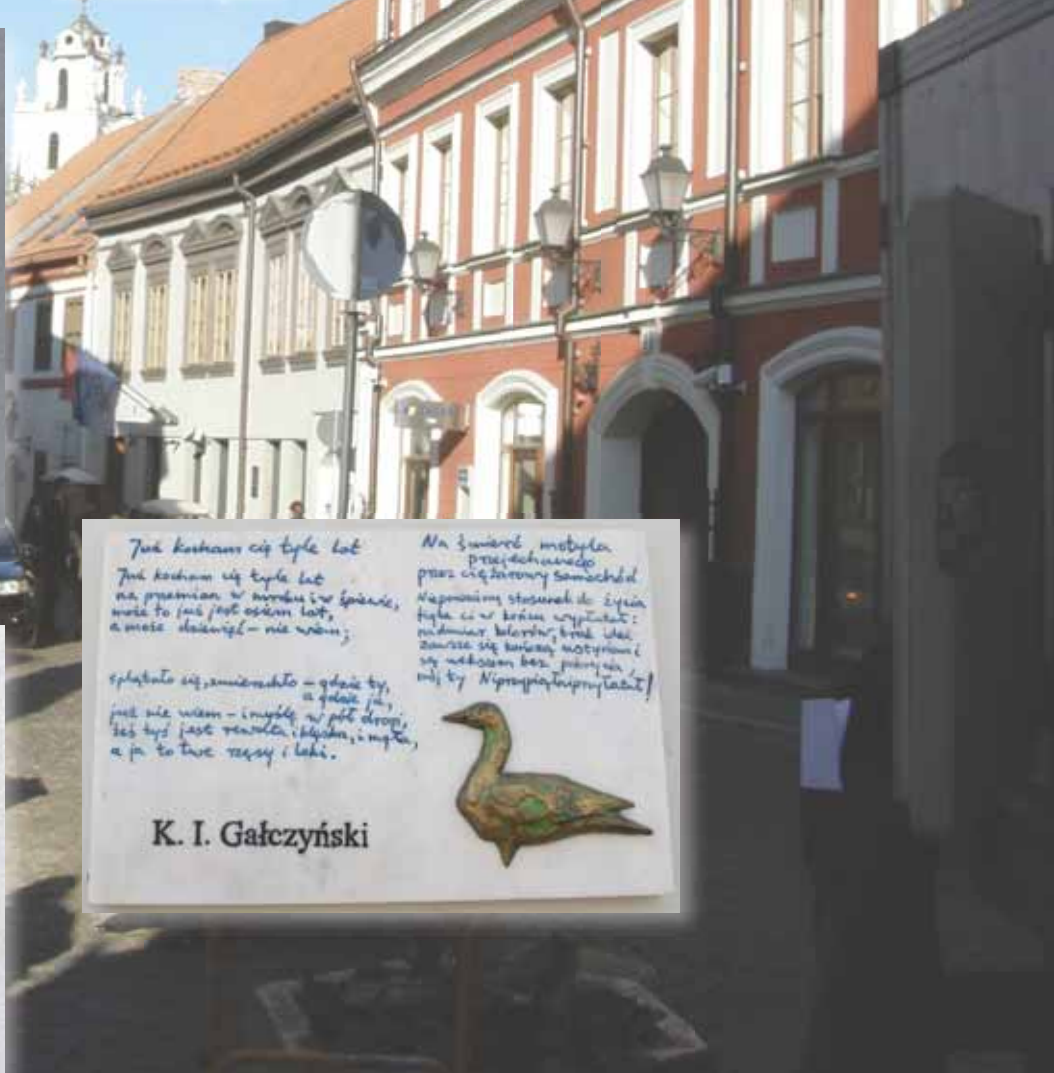 Już kocham cię tyle lat
Już kocham cię tyle lat
na przemian w mroku i w śpiewie,
może to już jest osiem lat,
a może dziewięć – nie wiem;
splątało się, zmierzchło – gdzie ty,
a gdzie ja,
już nie wiem – i myślę w pół drogi,
żeś tyś jest rewolta i klęska, i mgła,
a ja to twe rzęsy i loki.
K. I. Gałczyński
Na śmierć motyla
przejechanego
przez ciężarowy samochód
stosunek do życia
figla ci w końcu wypłatał:
nadmiar kolorów, brak idei
zawsze się kończą
są wekslem bez pokrycia,
mój ty